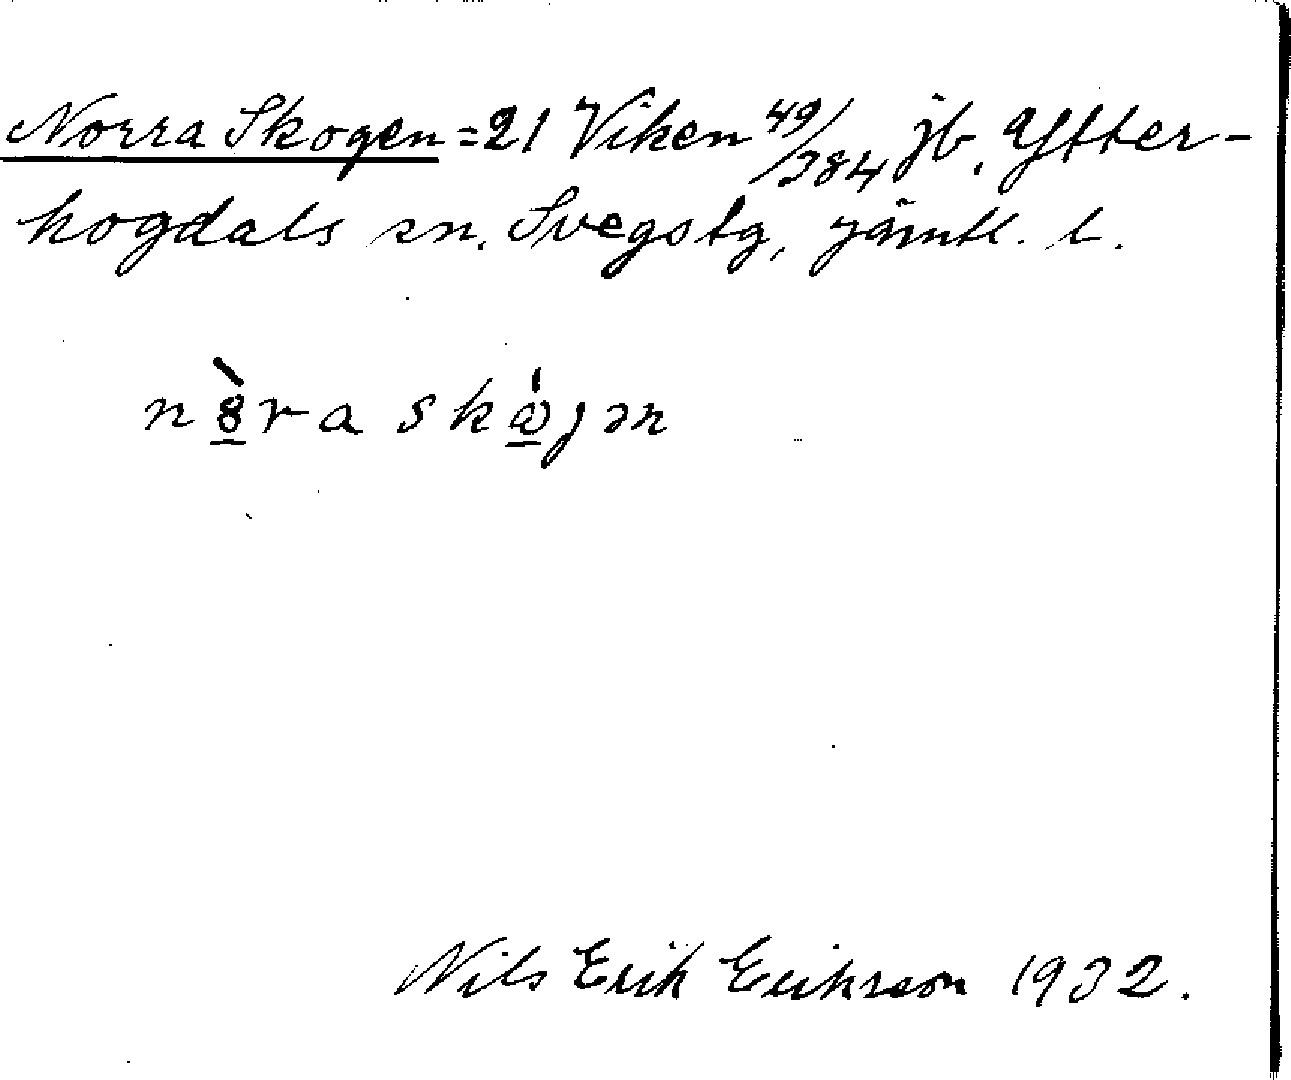 Norra Skogen = 21 Viken 49/384 jb. Ytter-
hogdals sn. Svegs tg, Jämtl. l.
n8̠̀ra skа̠́jən
Nils Erik Erikson 1932.